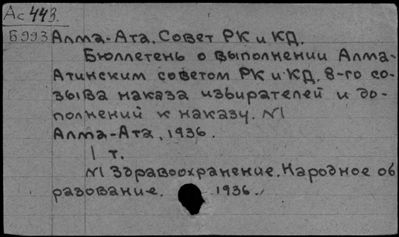 Ас 443.
Б993 Алма-Ата. Совет РК и КД.
Бюллетень о выполнении Алма-
Атинским советом РК и КД, 8-го со-
зыва наказа избирателей и до-
полнений к наказу. №1
Алма-Ата, 1936.
1 т.
№1 Здравоохранение. Народное об
разование. 1936.